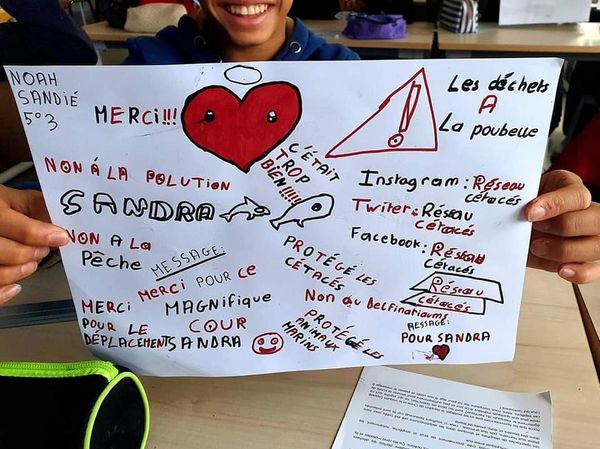 NOAH
SANDIÉ
5°3
MERCi!!!
C'ÉTAIT
TROP
BIEN!!!!!
LES déchets
A
La poubelle
NON Á LA POLUTION
SANDRA
Instagram : Réseau
cétacés
Twiter : Résau
cétacés
Facebook : Réseau
cétacés
Réseau
cétacés
NON A La
Pêche
MESSAGE:
MERCi POUR CE
MAGNifique
COUR
SANDRA
MERCi
POUR LE
DÉPLACEMENT
PROTÉGÉ LES
CÉTACÉS
NON au Delfinatiaums
PROTÉGÉ LES
ANIMAUX
MARINS
MESSAGE:
POUR SANDRA